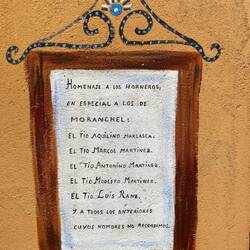 HOMENAJE A LOS HORNEROS,
EN ESPECIAL A LOS DE
MORANCHEL:
EL TIO AQUILINO MARLASCA.
EL TIO MARCOS MARTINEZ.
EL TIO ANTONINO MARTINEZ.
EL TIO MODESTO MARTINEZ.
EL TIO LUIS RANZ.
Y A TODOS LOS ANTERIORES
CUYOS NOMBRES NO RECORDAMOS.